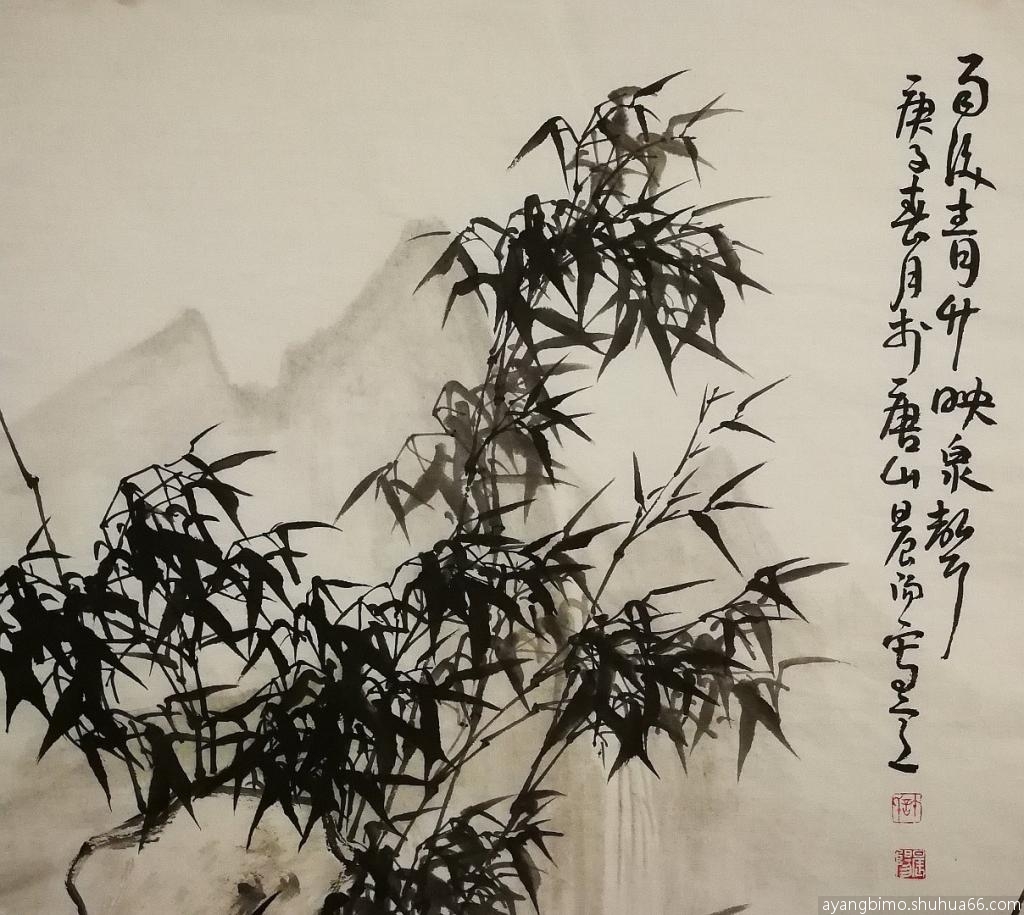 雨後青竹映泉聲
庚子春月於唐山晨陽寫之
ayangbimo.shuhua66.com